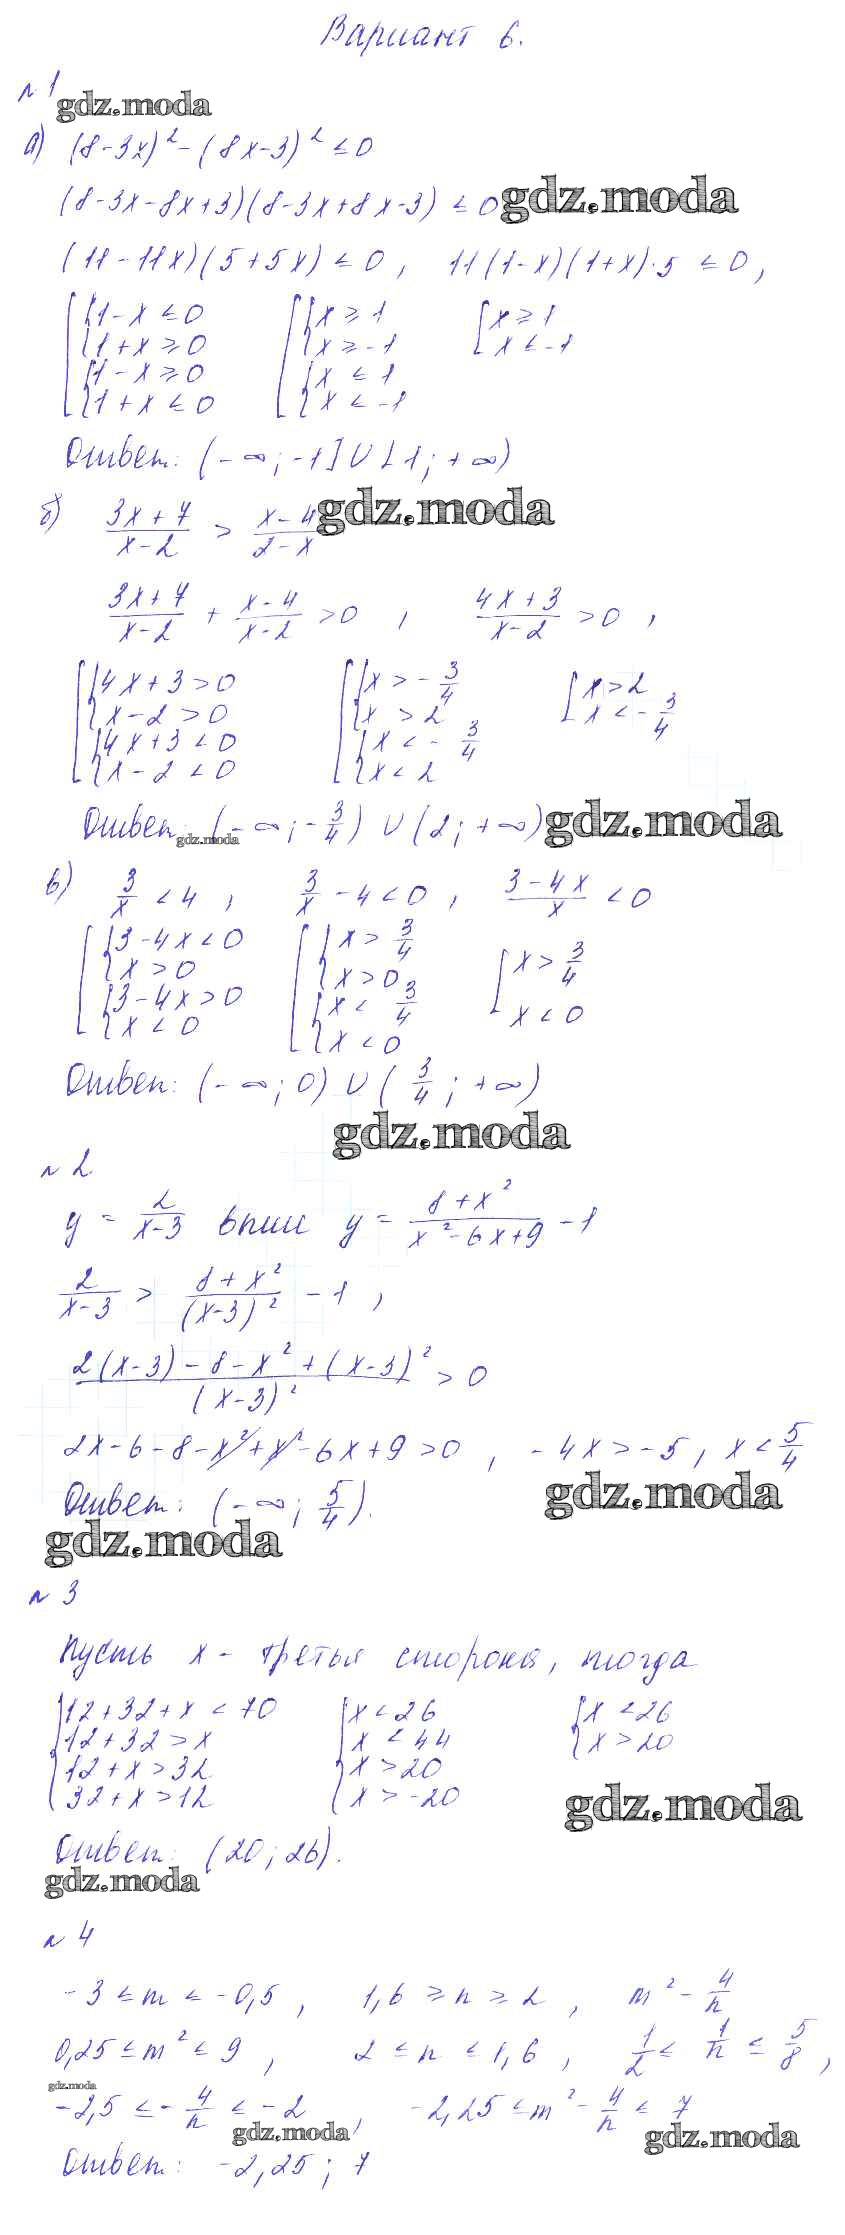 Вариант 6.
№ 1
gdz.moda
а) (8-3x)² - (8x-3)² ≤ 0
(8-3x-8x+3)(8-3x+8x-3) ≤ 0 gdz.moda
(11-11x)(5+5x) ≤ 0, 11(1-x)(1+x)·5 ≤ 0,
[{1-x ≤ 0 [{x ≥ 1 [x ≥ 1
{1+x ≥ 0 {x ≥ -1 x ≤ -1
{1-x ≥ 0 {x ≤ 1
{1+x ≤ 0 {x ≤ -1
Ответ: (-∞; -1] ∪ [1; +∞)
б) (3x+7)/(x-2) > (x-4)/(2-x) gdz.moda
(3x+7)/(x-2) + (x-4)/(x-2) > 0, (4x+3)/(x-2) > 0,
[{4x+3 > 0 [{x > -3/4 [x > 2
{x-2 > 0 {x > 2 x < -3/4
{4x+3 < 0 {x < -3/4
{x-2 < 0 {x < 2
Ответ: (-∞; -3/4) ∪ (2; +∞) gdz.moda
gdz.moda
в) 3/x < 4, 3/x - 4 < 0, (3-4x)/x < 0
[{3-4x < 0 [{x > 3/4 [x > 3/4
{x > 0 {x > 0 x < 0
{3-4x > 0 {x < 3/4
{x < 0 {x < 0
Ответ: (-∞; 0) ∪ (3/4; +∞)
gdz.moda
№ 2
y = 2/(x-3) выше y = (8+x²)/(x²-6x+9) - 1
2/(x-3) > (8+x²)/(x-3)² - 1,
(2(x-3) - 8 - x² + (x-3)²)/(x-3)² > 0
2x-6-8-x²+x²-6x+9 > 0, -4x > -5, x < 5/4
Ответ: (-∞; 5/4). gdz.moda
gdz.moda
№ 3
Пусть x - третья сторона, тогда
{12+32+x < 70 {x < 26 {x < 26
12+32 > x x < 44 x > 20
12+x > 32 x > 20
32+x > 12 x > -20
gdz.moda
Ответ: (20; 26).
gdz.moda
№ 4
-3 ≤ m ≤ -0,5, 1,6 ≥ n ≥ 2, m² - 4/n
0,25 ≤ m² ≤ 9, 2 ≤ n ≤ 1,6, 1/2 ≤ 1/n ≤ 5/8,
gdz.moda
-2,5 ≤ -4/n ≤ -2, -2,25 ≤ m² - 4/n ≤ 7
gdz.moda gdz.moda
Ответ: -2,25; 7